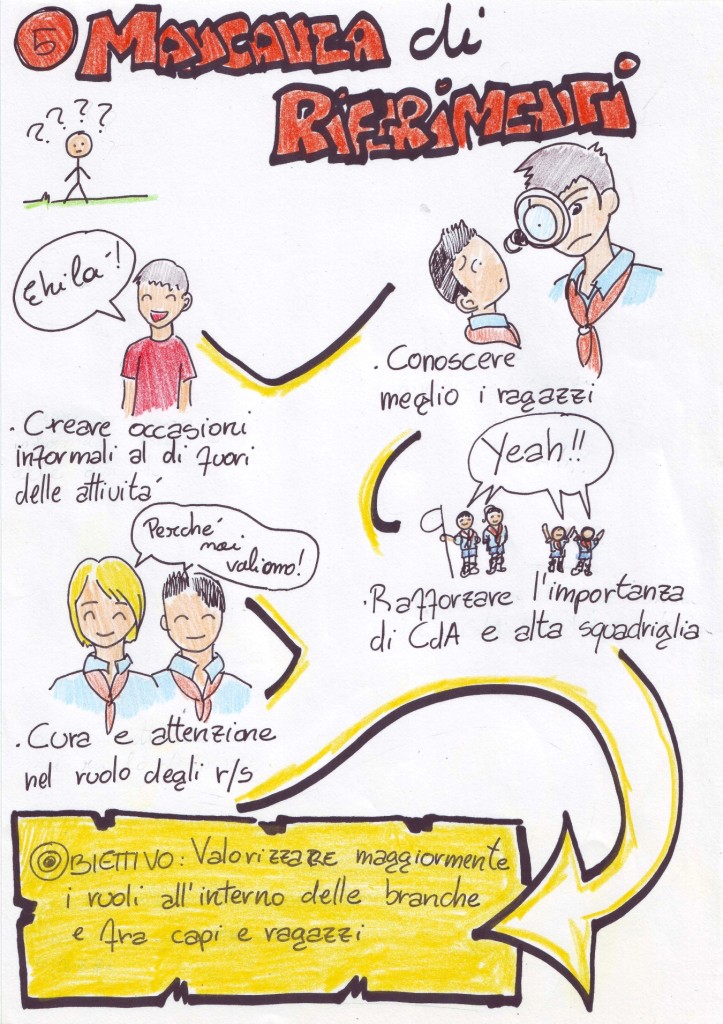 5 MANCANZA di
RIFERIMENTI
? ? ? ?
Ehilà!
. Creare occasioni
informali al di fuori
delle attività
. Conoscere
meglio i ragazzi
Yeah!!
. Rafforzare l'importanza
di CdA e alta squadriglia
Perché
noi
valiamo!
. Cura e attenzione
nel ruolo degli r/s
OBIETTIVO: Valorizzare maggiormente
i ruoli all'interno delle branche
e fra capi e ragazzi